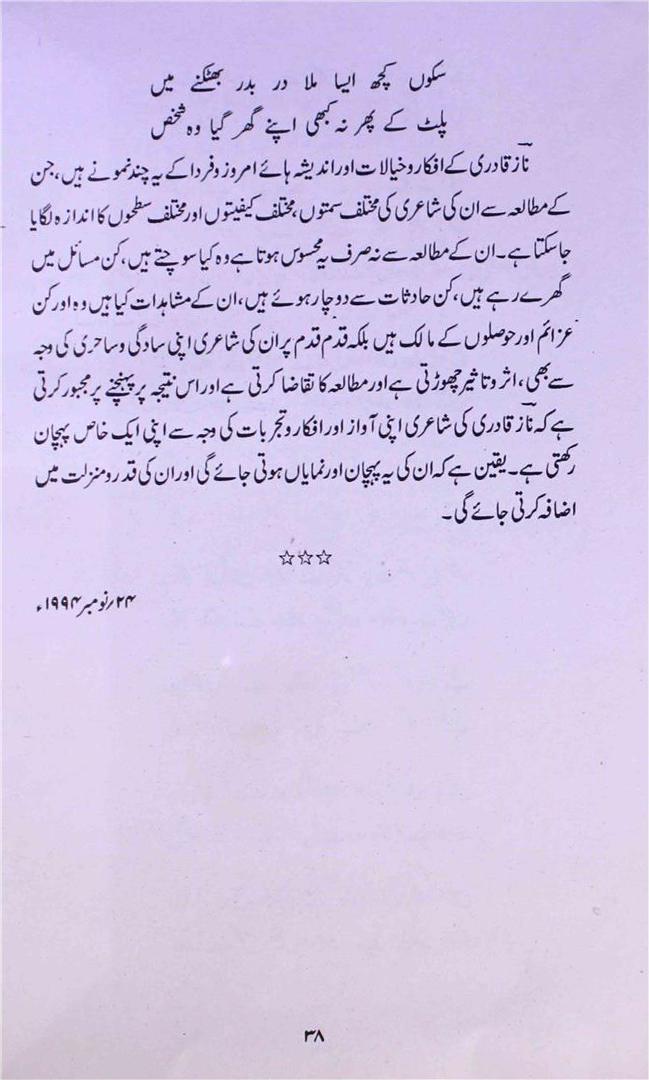 سکوں کچھ ایسا ملا در بدر بھٹکنے میں
پلٹ کے پھر نہ کبھی اپنے گھر گیا وہ شخص
نازؔ قادری کے افکار و خیالات اور اندیشہ ہائے امروز و فردا کے یہ چند نمونے ہیں، جن
کے مطالعہ سے ان کی شاعری کی مختلف سمتوں، مختلف کیفیتوں اور مختلف سطحوں کا اندازہ لگایا
جا سکتا ہے۔ ان کے مطالعہ سے نہ صرف یہ محسوس ہوتا ہے وہ کیا سوچتے ہیں، کن مسائل میں
گھرے رہے ہیں، کن حادثات سے دوچار ہوئے ہیں، ان کے مشاہدات کیا ہیں وہ اور کن
عزائم اور حوصلوں کے مالک ہیں بلکہ قدم قدم پر ان کی شاعری اپنی سادگی و ساحری کی وجہ
سے بھی، اثر و تاثیر چھوڑتی ہے اور مطالعہ کا تقاضا کرتی ہے اور اس نتیجہ پر پہنچنے پر مجبور کرتی
ہے کہ نازؔ قادری کی شاعری اپنی آواز اور افکار و تجربات کی وجہ سے اپنی ایک خاص پہچان
رکھتی ہے۔ یقین ہے کہ ان کی یہ پہچان اور نمایاں ہوتی جائے گی اور ان کی قدر و منزلت میں
اضافہ کرتی جائے گی۔
☆☆☆
۲۴؍نومبر ۱۹۹۴ء
۳۸